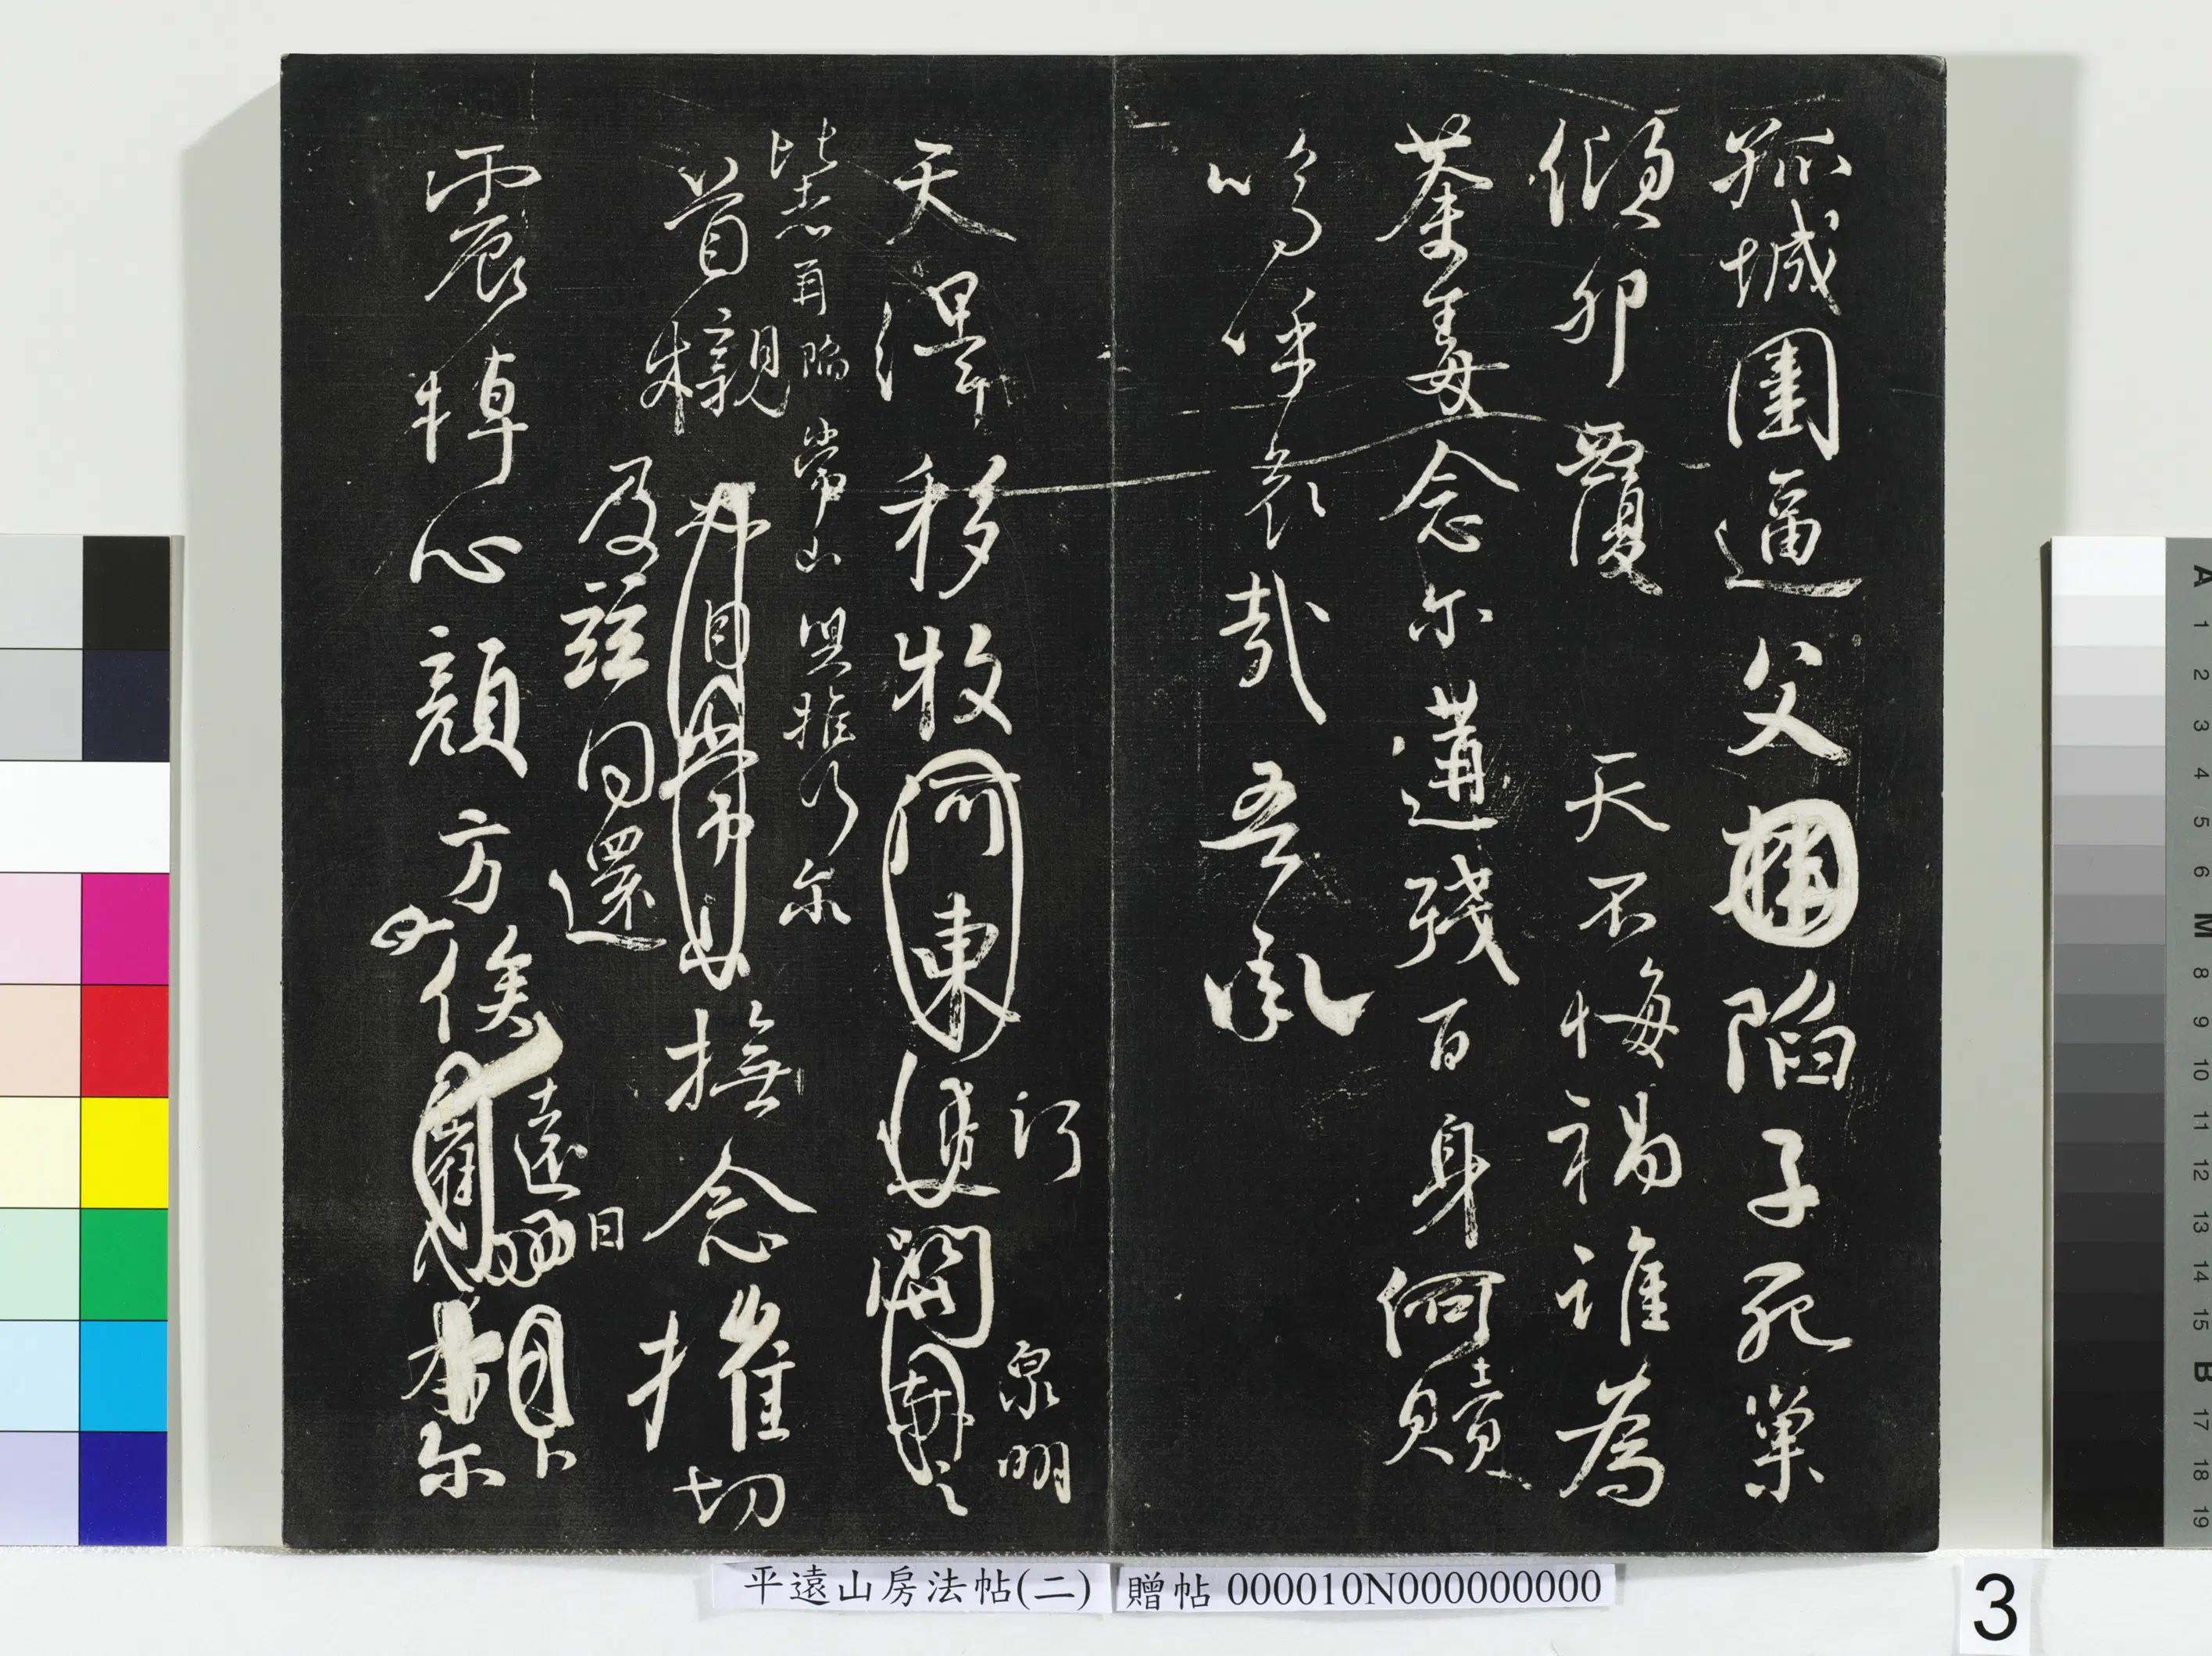 孤城圍逼父陷子死巢
傾卵覆 天不悔禍誰為
荼毒念尔遘殘百身何贖
嗚呼哀哉吾承
天澤移牧河東近關
河
泉明
比者再陷常山携尔
首櫬亦自常山撫念摧切
及茲同還
震悼心顏方俟尔
遠日卜
平遠山房法帖(二)
贈帖 000010N000000000
3
A 1 2 3 4 5 6 M 8 9 10 11 12 13 14 15 B 17 18 19